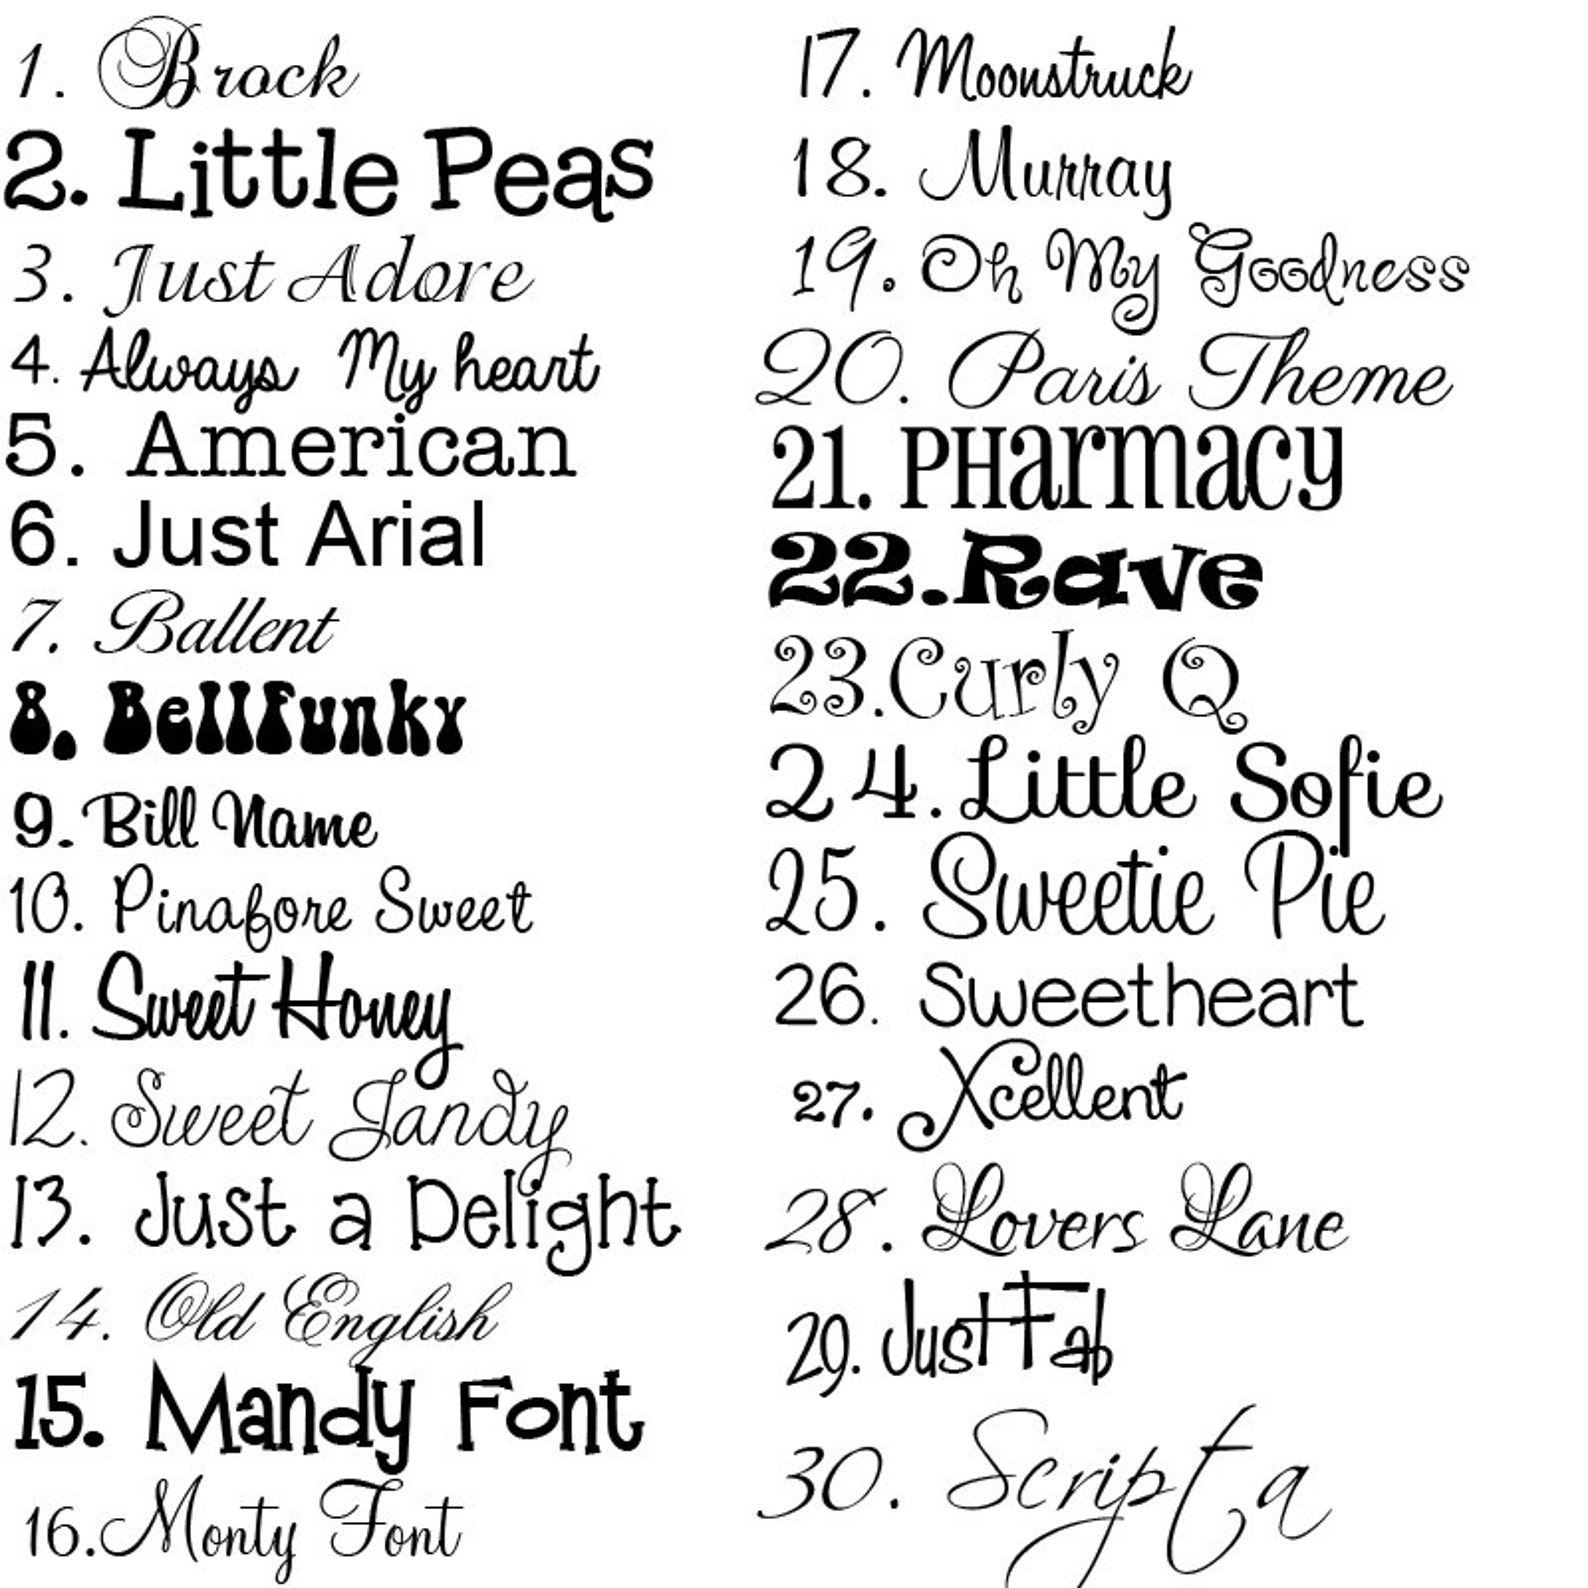 1. Brock
2. Little Peas
3. Just Adore
4. Always My heart
5. American
6. Just Arial
7. Ballent
8. Bellfunky
9. Bill Name
10. Pinafore Sweet
11. Sweet Honey
12. Sweet Jandy
13. Just a Delight
14. Old English
15. Mandy Font
16. Monty Font
17. Moonstruck
18. Murray
19. Oh My Goodness
20. Paris Theme
21. PHarmacy
22. Rave
23. Curly Q
24. Little Sofie
25. Sweetie Pie
26. Sweetheart
27. Xcellent
28. Lovers Lane
29. Just Fab
30. Scripta